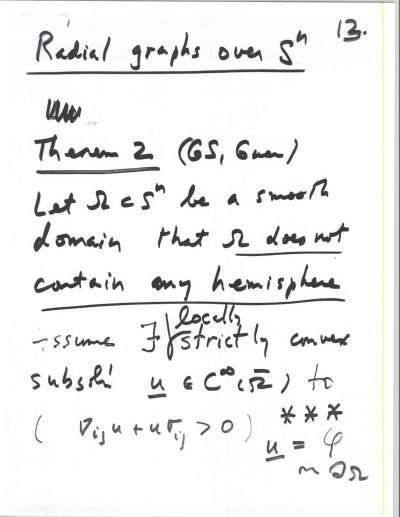 13.
Radial graphs over Sⁿ
Theorem 2 (GS, Guan)
Let Ω ⊂ Sⁿ be a smooth
domain that Ω does not
contain any hemisphere
locally
Assume ∃ strictly convex
subsol'n u ∈ C^∞(Ω̄) to
***
( ∇ij u + u σij > 0 )
u = φ
on ∂Ω